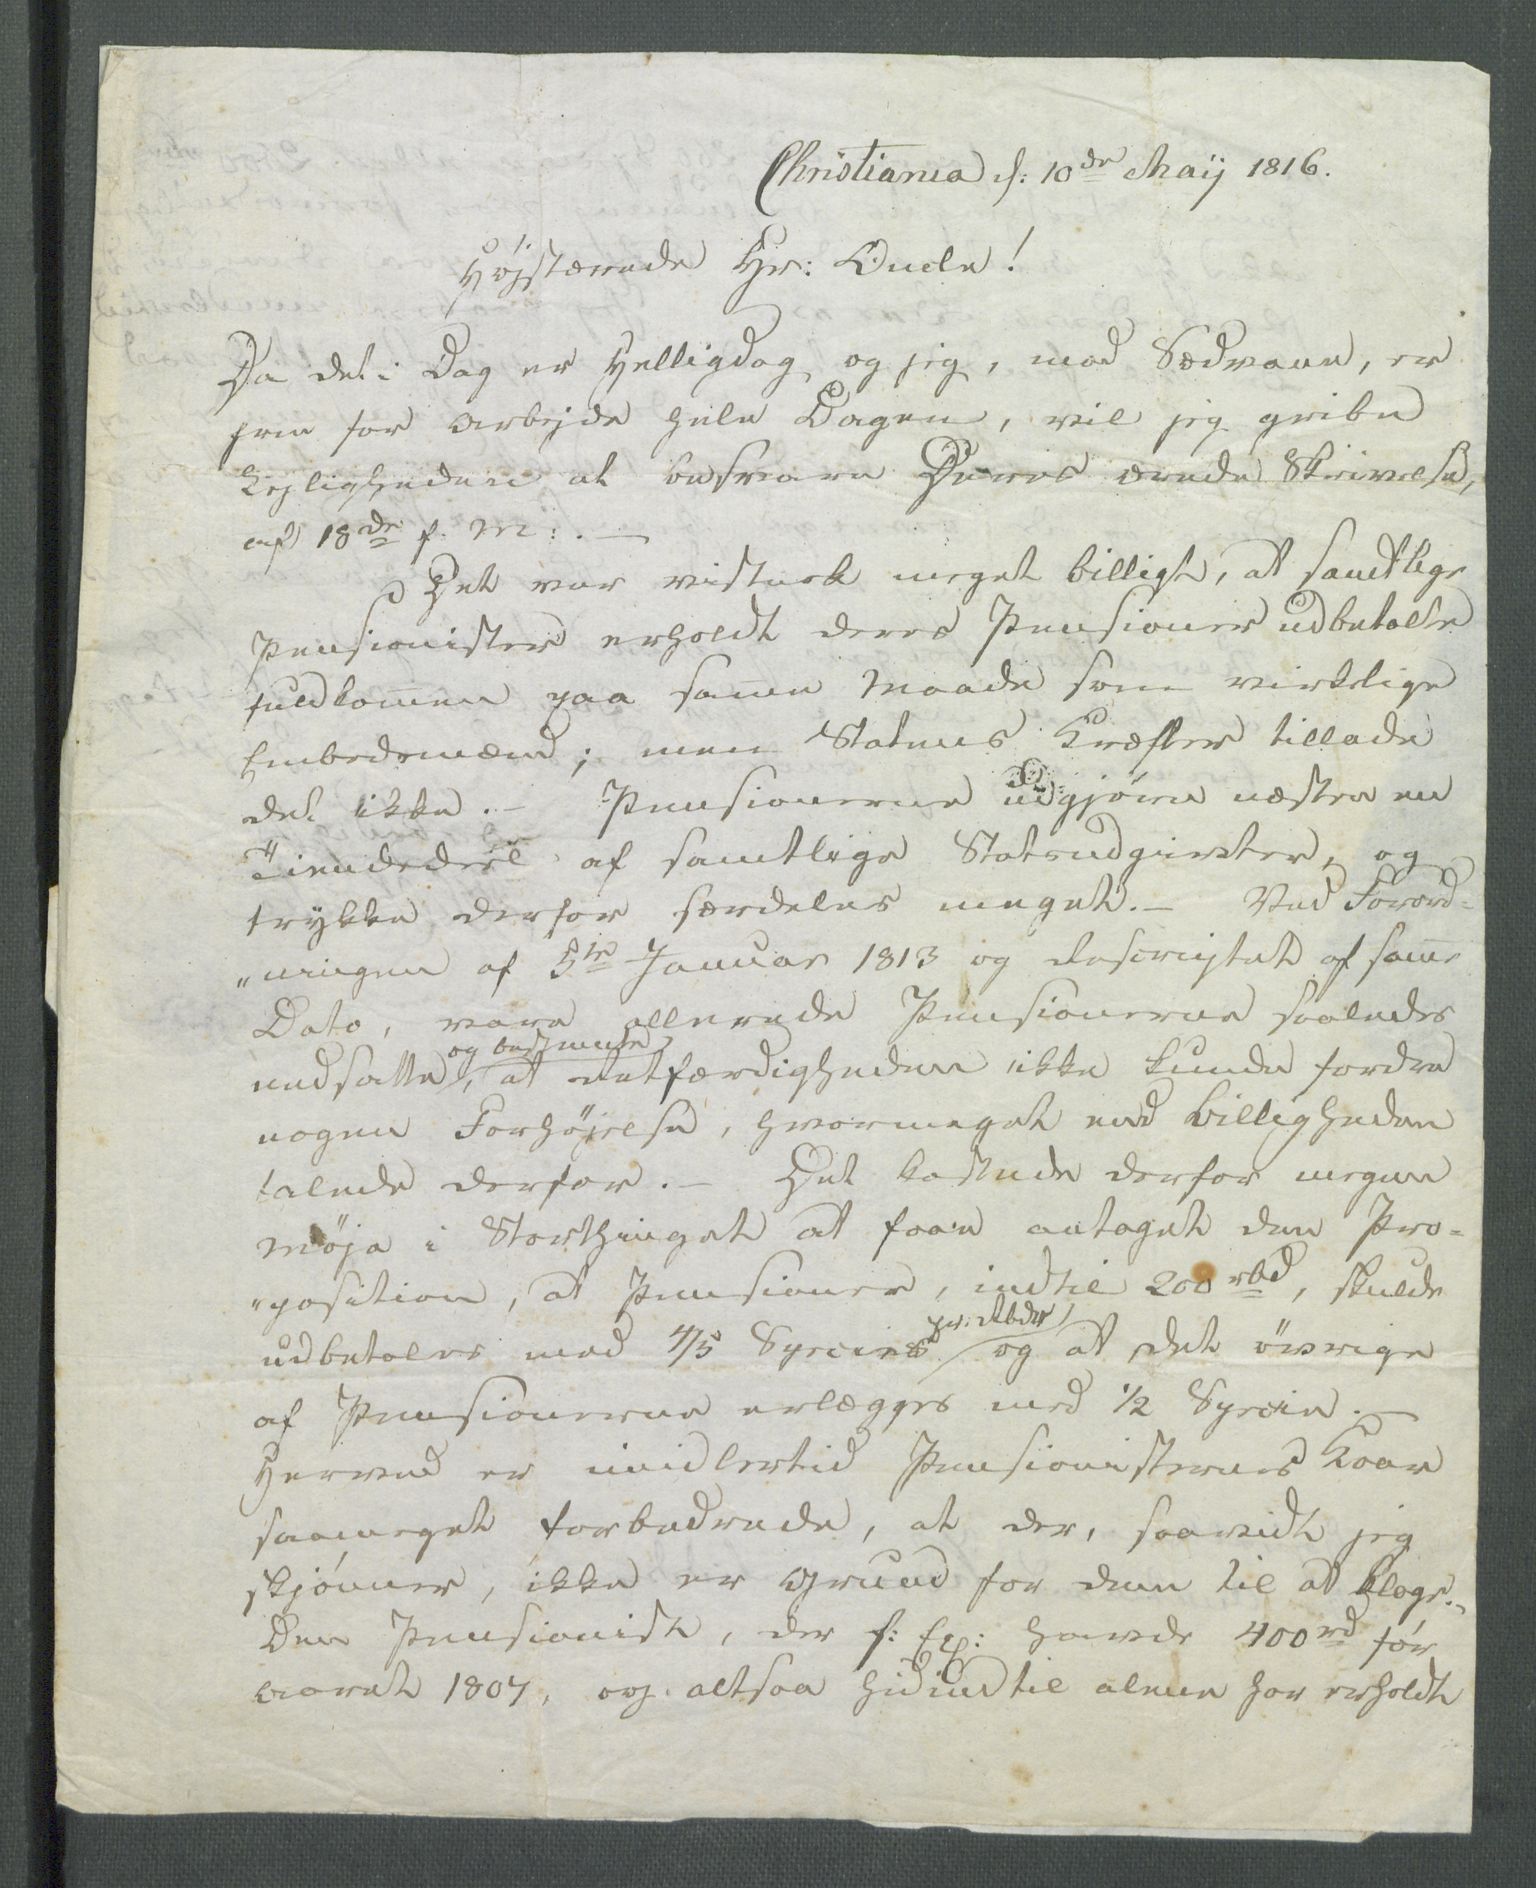 Christiania d: 10de Maij 1816.
Højstærede Hr: Onele!
Da det i Dag er Helligdag og jeg, mod Sædvane, er
frie for Arbejde hele Dagen, vil jeg gribe
Lejligheden at besvare Deres ærede Skrivelse,
af 18de f. M: . —
Det var vistnok meget billigt, at samtlige
Pensionister erholdt deres Pensioner udbetalte
fuldkom̄en paa sam̄e Maade som virkelige
Embedsmænd; men Statens Kræfter tillade
det ikke. — Pensionerne udgjøre næsten en
Tiendedeel af samtlige Statsudgivter, og
trykke derfor særdeles meget. — Ved Forord-
„ningen af 5te Januar 1813 og Rescriptet af sam̄e
Dato, vare allerede Pensionerne saaledes
og bestemte
nedsatte, at Retfærdigheden ikke kunde fordre
nogen Forhøjelse, hvormeget end Billigheden
talede derfor. — Det kostede derfor megen
Møje i Storthinget at faae antaget den Pro-
„position, at Pensioner, indtil 200 rbd, skulde
pr: Rbdr
udbetales med 4/5 Species og at det øvrige
af Pensionerne erlægges med 1/2 Specie. —
Herved er imidlertid Pensionisternes Kaar
saameget forbedrede, at der, saavidt jeg
skjønner, ikke er Grund for dem til at klage. —
Den Pensionist, der f: Ex: havde 400 rd før
Aaret 1807, og altsaa hidindtil alene har erholdt